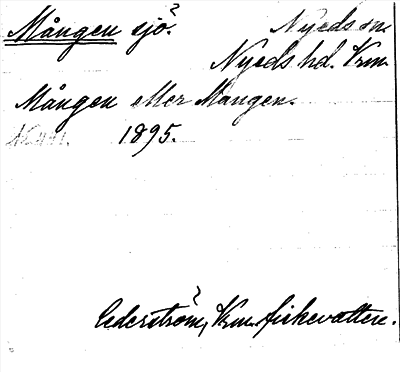 Mången sjö. Nyeds sn.
Nyeds hd. Vrm.
Mången eller Mangen.
1895.
Cederström, Vrm. fiskevatten.